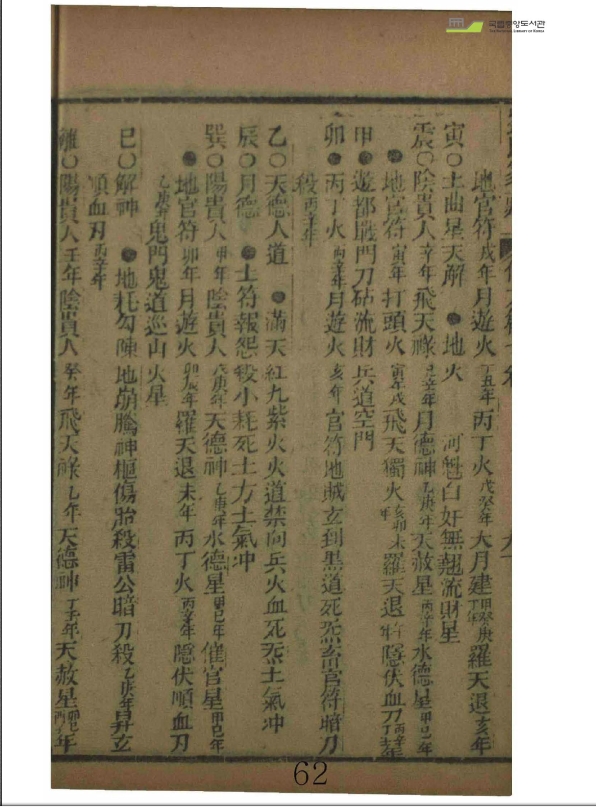 국립중앙도서관
地官符戌年月遊火丁丑年丙丁火戊癸年大月建羅天退亥年
寅○土曲星天解●地火 河魁白奸無翹流財星
震○陰貴人辛年飛天祿月德神乙庚年天赦星丙辛年水德星甲己年
●地官符寅年打頭火寅午戌飛天獨火亥卯未年羅天退隱伏血刃
甲●遊都戰門刀砧流財兵道空門
卯●丙丁火丙辛年月遊火亥年官符地賊玄到黑道死炁官符暗刀
殺丙辛年
乙○天德人道●滿天紅九紫火火道禁向兵火血死炁土氣冲
辰○月德●土符報怨殺小耗死土方土氣冲
巽○陽貴人甲年陰貴人戊庚年天德神乙庚年水德星甲己年催官星甲己年
●地官符卯年月遊火羅天退未年丙丁火丙辛年隱伏順血刃
乙庚年鬼門鬼道巡山火星
巳○解神●地耗勾陳地崩騰神樞傷胎殺雷公暗刀殺乙庚年昇玄
順血刃丙辛年
離○陽貴人壬年陰貴人癸年飛天祿乙年天德神丁壬年天赦星
62